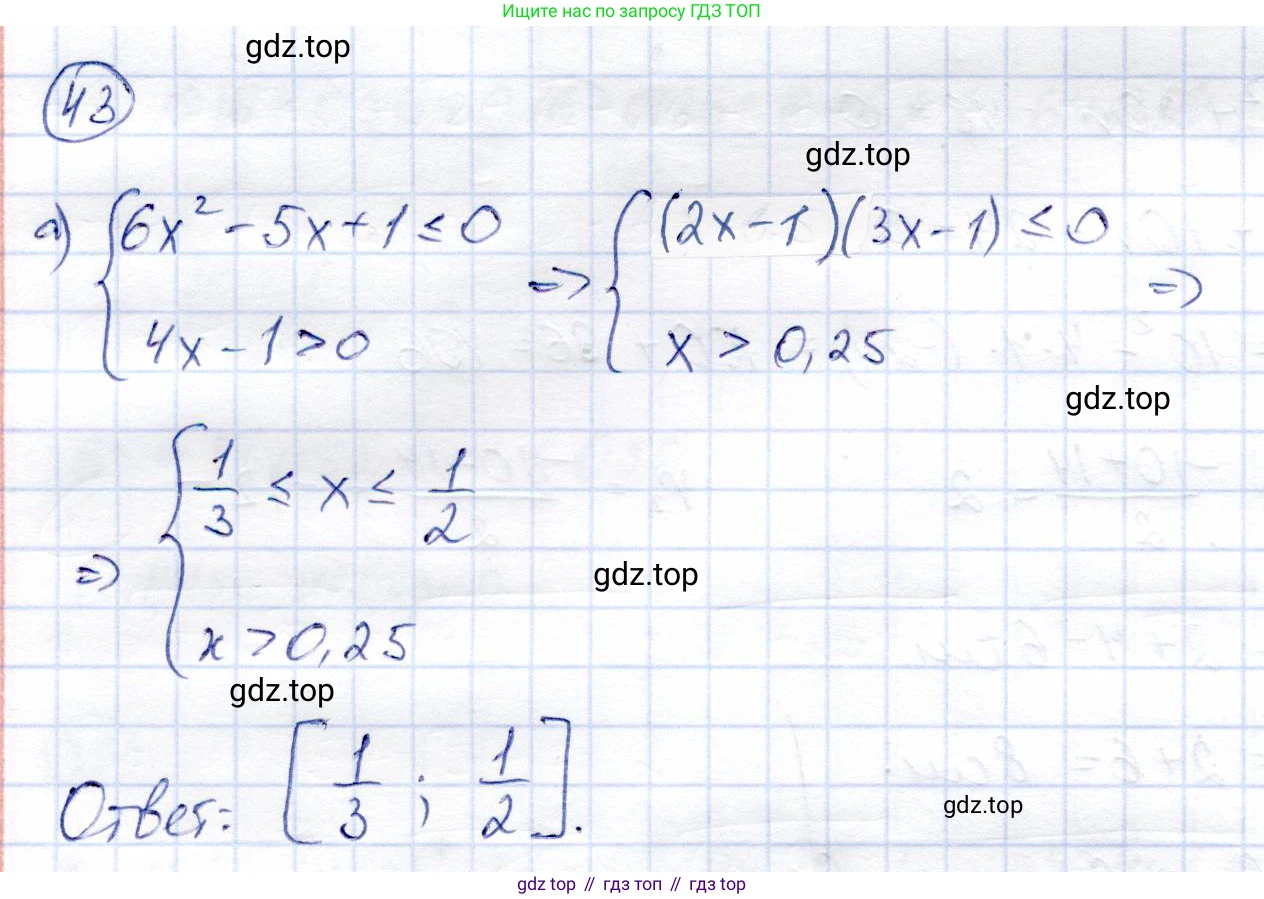 Ищите нас по запросу ГДЗ ТОП
gdz.top
43
gdz.top
а) { 6x² - 5x + 1 ≤ 0 => { (2x - 1)(3x - 1) ≤ 0 =>
4x - 1 > 0 x > 0,25
gdz.top
=> { 1/3 ≤ x ≤ 1/2
gdz.top
x > 0,25
gdz.top
Ответ: [1/3 ; 1/2].
gdz.top
gdz top // гдз топ // gdz top